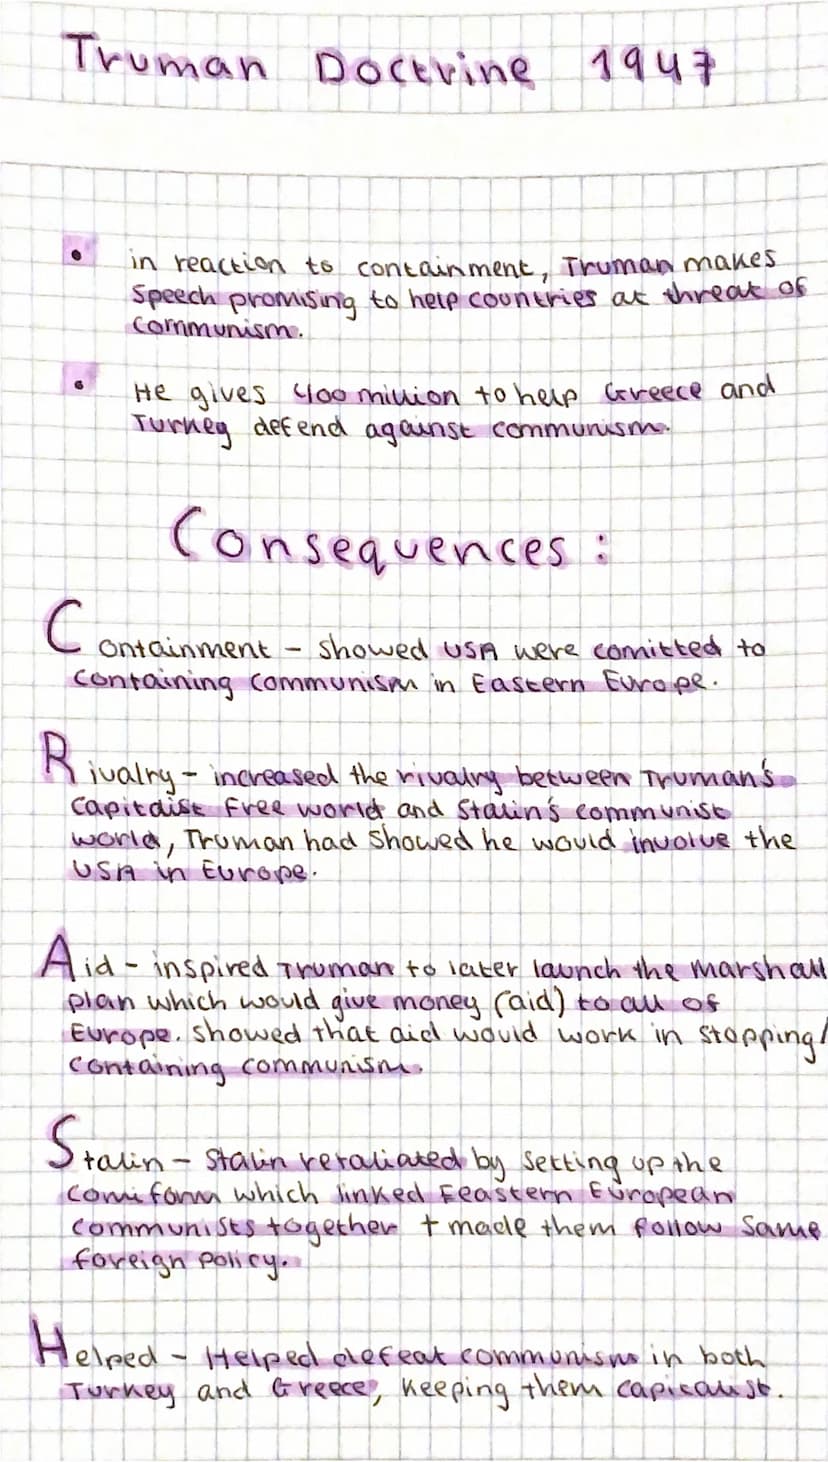 Truman Doctrine 1947
• in reaction to containment, Truman makes
speech promising to help countries at threat of
communism.
• He gives 400 million to help Greece and
Turkey defend against communism.
Consequences:
Containment - showed USA were comitted to
containing communism in Eastern Europe.
Rivalry - increased the rivalry between Truman's
capitalist free world and Stalin's communist
world, Truman had showed he would involve the
USA in Europe.
Aid - inspired Truman to later launch the marshall
plan which would give money (aid) to all of
Europe. showed that aid would work in stopping/
containing communism.
Stalin - Stalin retaliated by setting up the
comiform which linked Eeastern European
communists together + made them follow same
foreign policy.
Helped - Helped defeat communism in both
Turkey and Greece, keeping them capitalist.